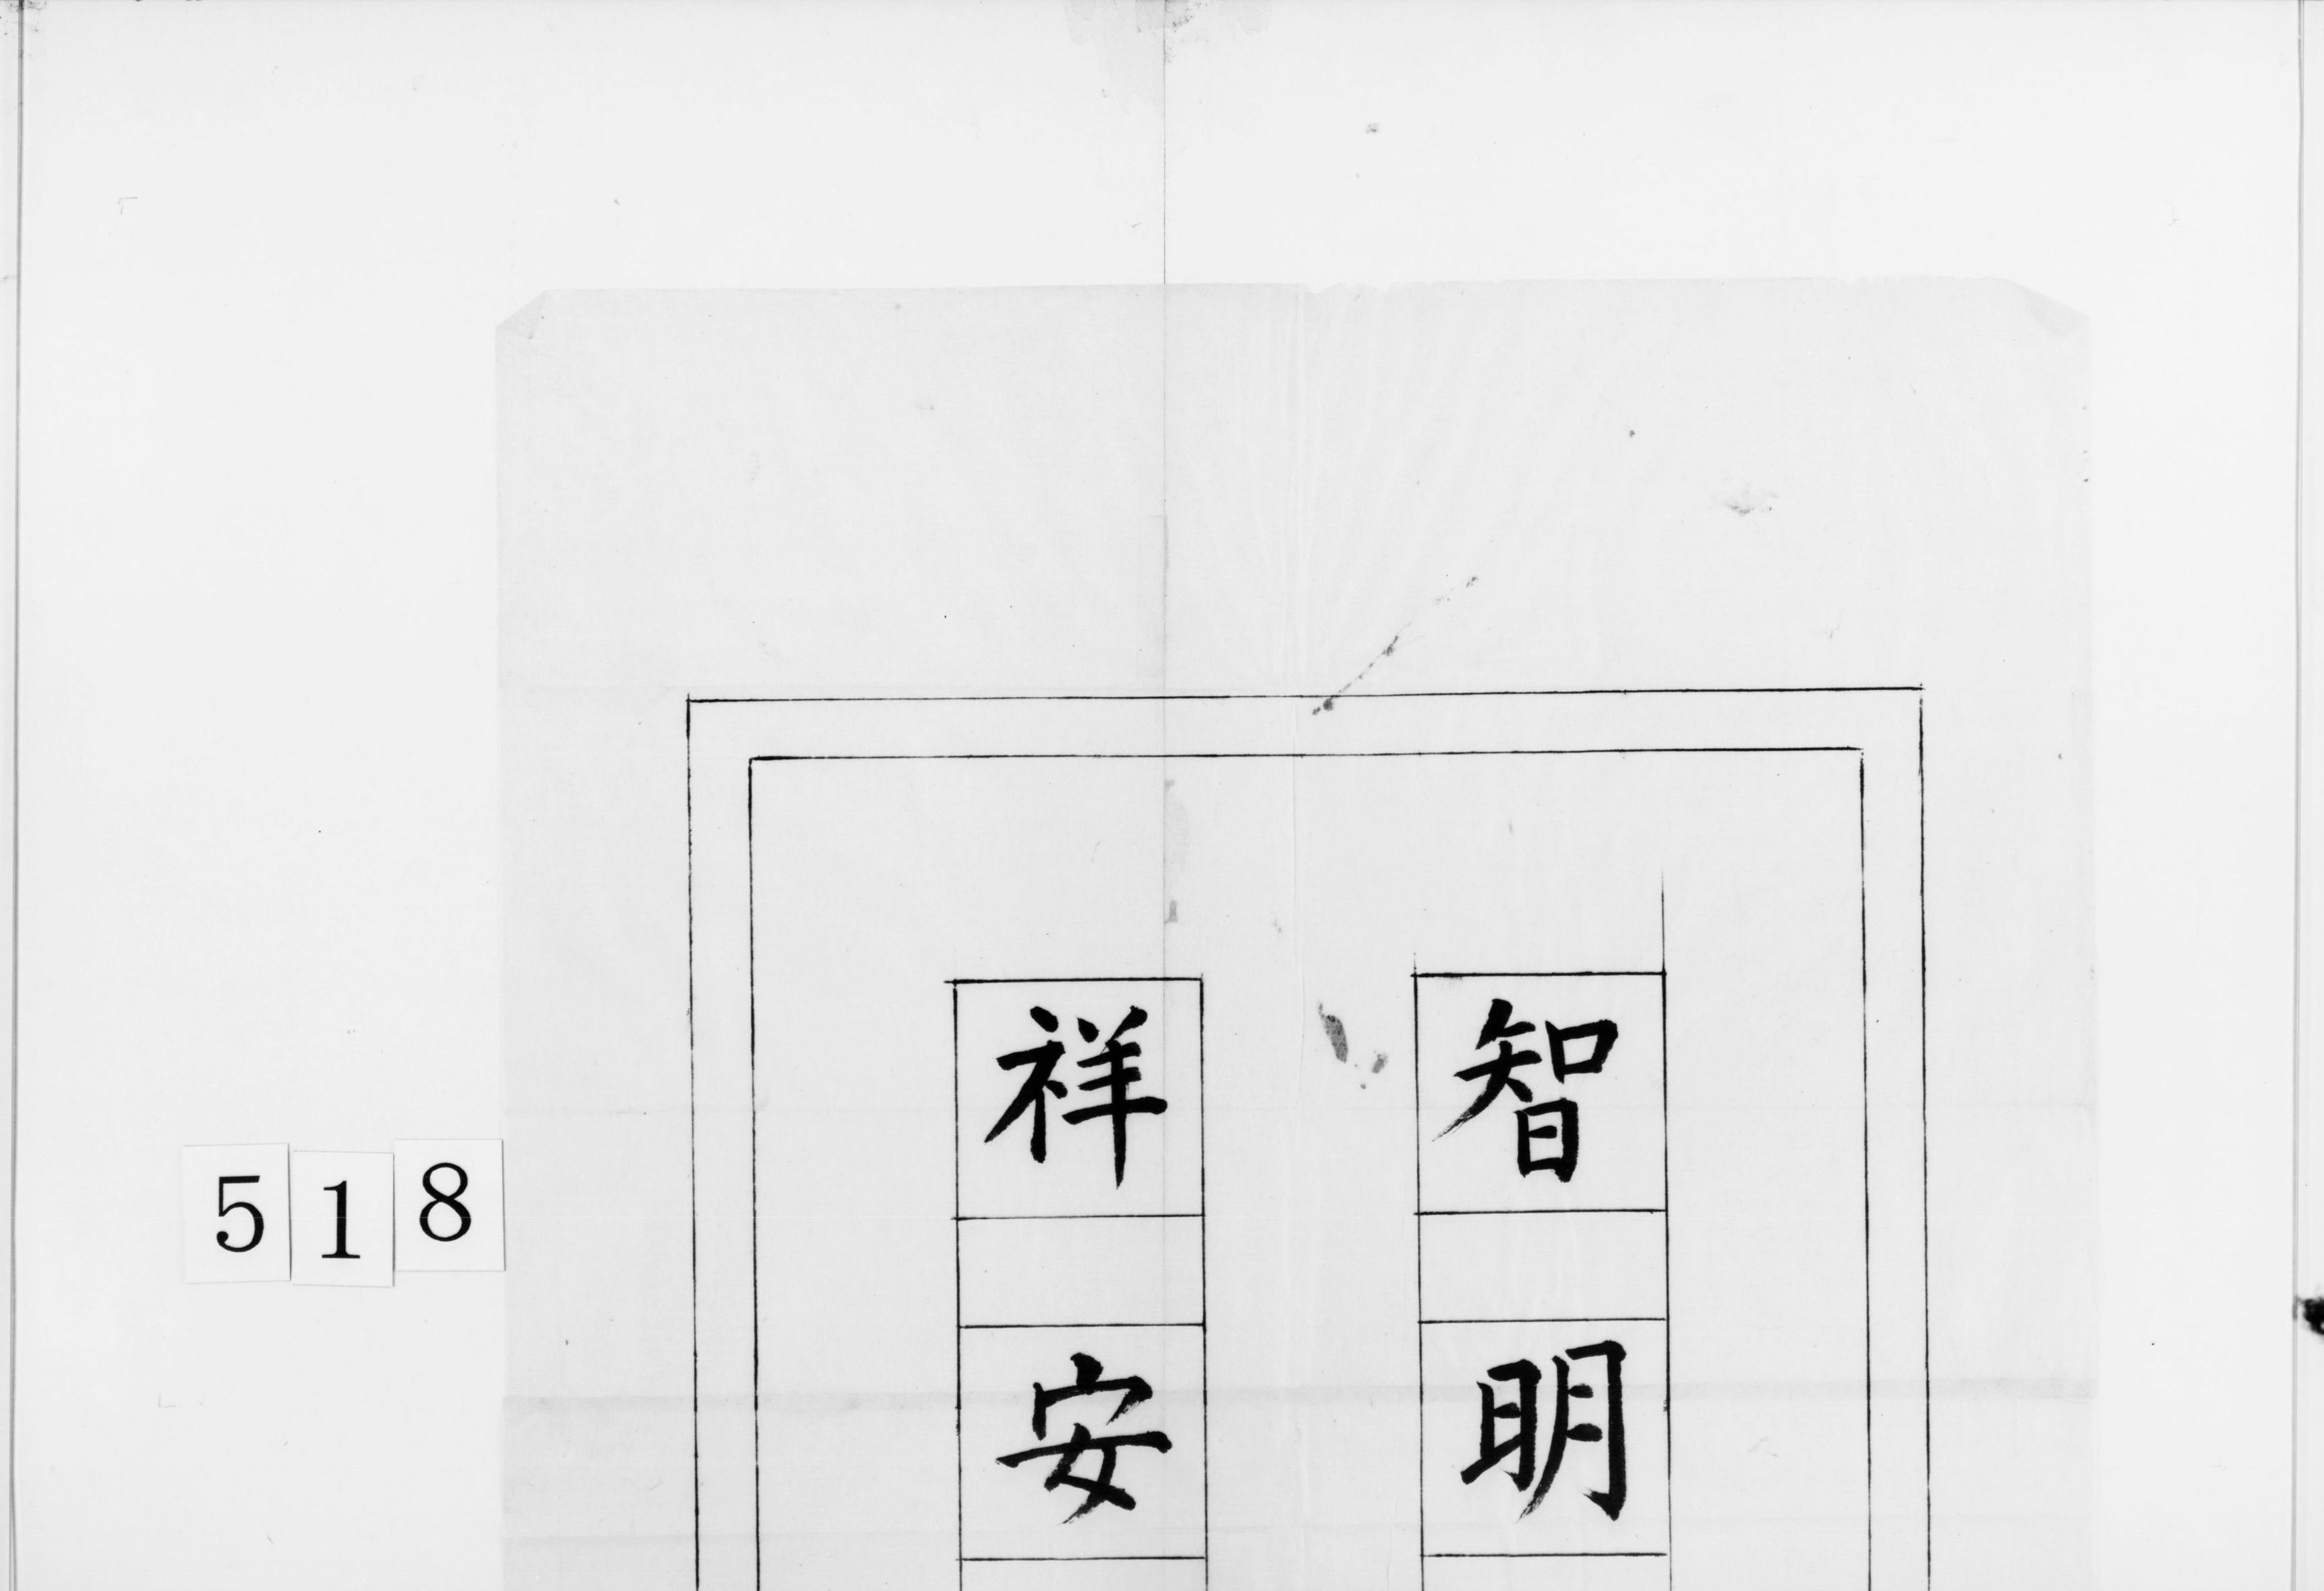 智明
祥安
518